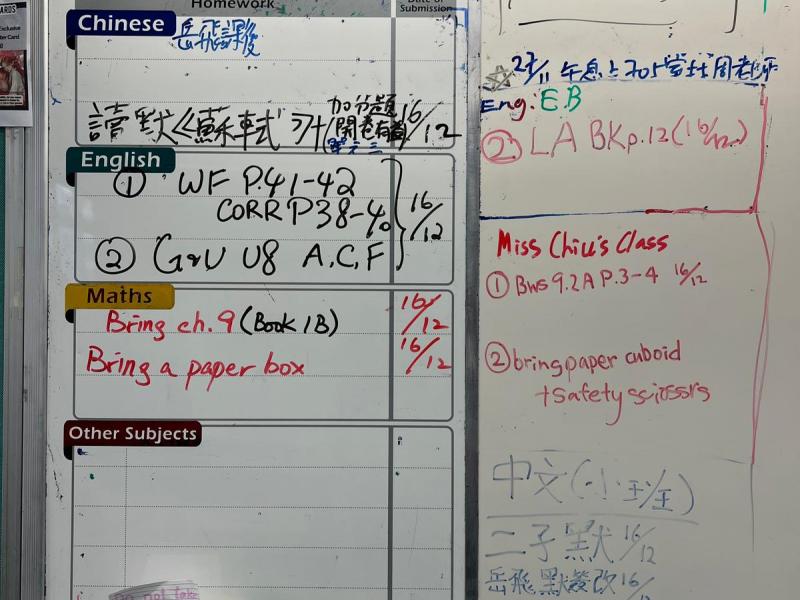 Homework
Date of
Submission
Chinese
岳飛課後
讀默《蘇軾》 16/12
加分題
開卷有益
English
① WF P.41-42
CORR P38-40
16/12
② G&U U8 A.C.F
Maths
Bring ch.9 (Book 1B) 16/12
Bring a paper box 16/12
Other Subjects
27/11 午息上705室找周老師
Eng: EB
② LA BK p.12 (16/12)
Miss Chiu's Class
① BWS 9.2A P.3-4 16/12
② bring paper cuboid
+safety scissors
中文(小班)
二子默 16/12
岳飛默簽改 16/